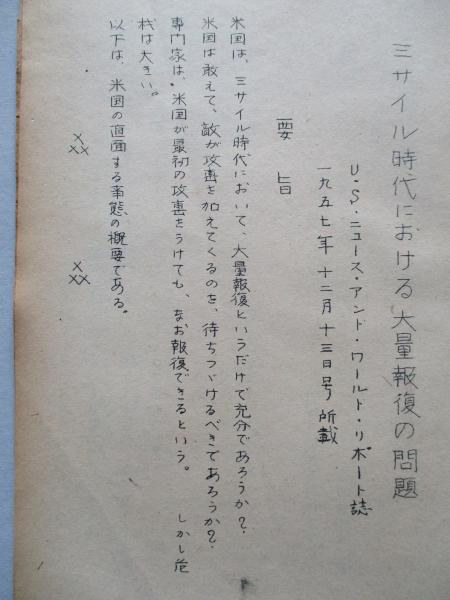 ミサイル時代における大量報復の問題
U・S・ニュース・アンド・ワールド・リポート誌
一九五七年 十二月 十三日号 所載
要 旨
米国は、ミサイル時代において、大量報復というだけで充分であろうか?
米国は敢えて、敵が攻撃を加えてくるのを、待ちつゞけるべきであろうか?
専門家は、米国が最初の攻撃をうけても、なお報復できるという。 しかし危
枕は大きい。
以下は、米国の直面する事態の概要である。
× ××
× ××